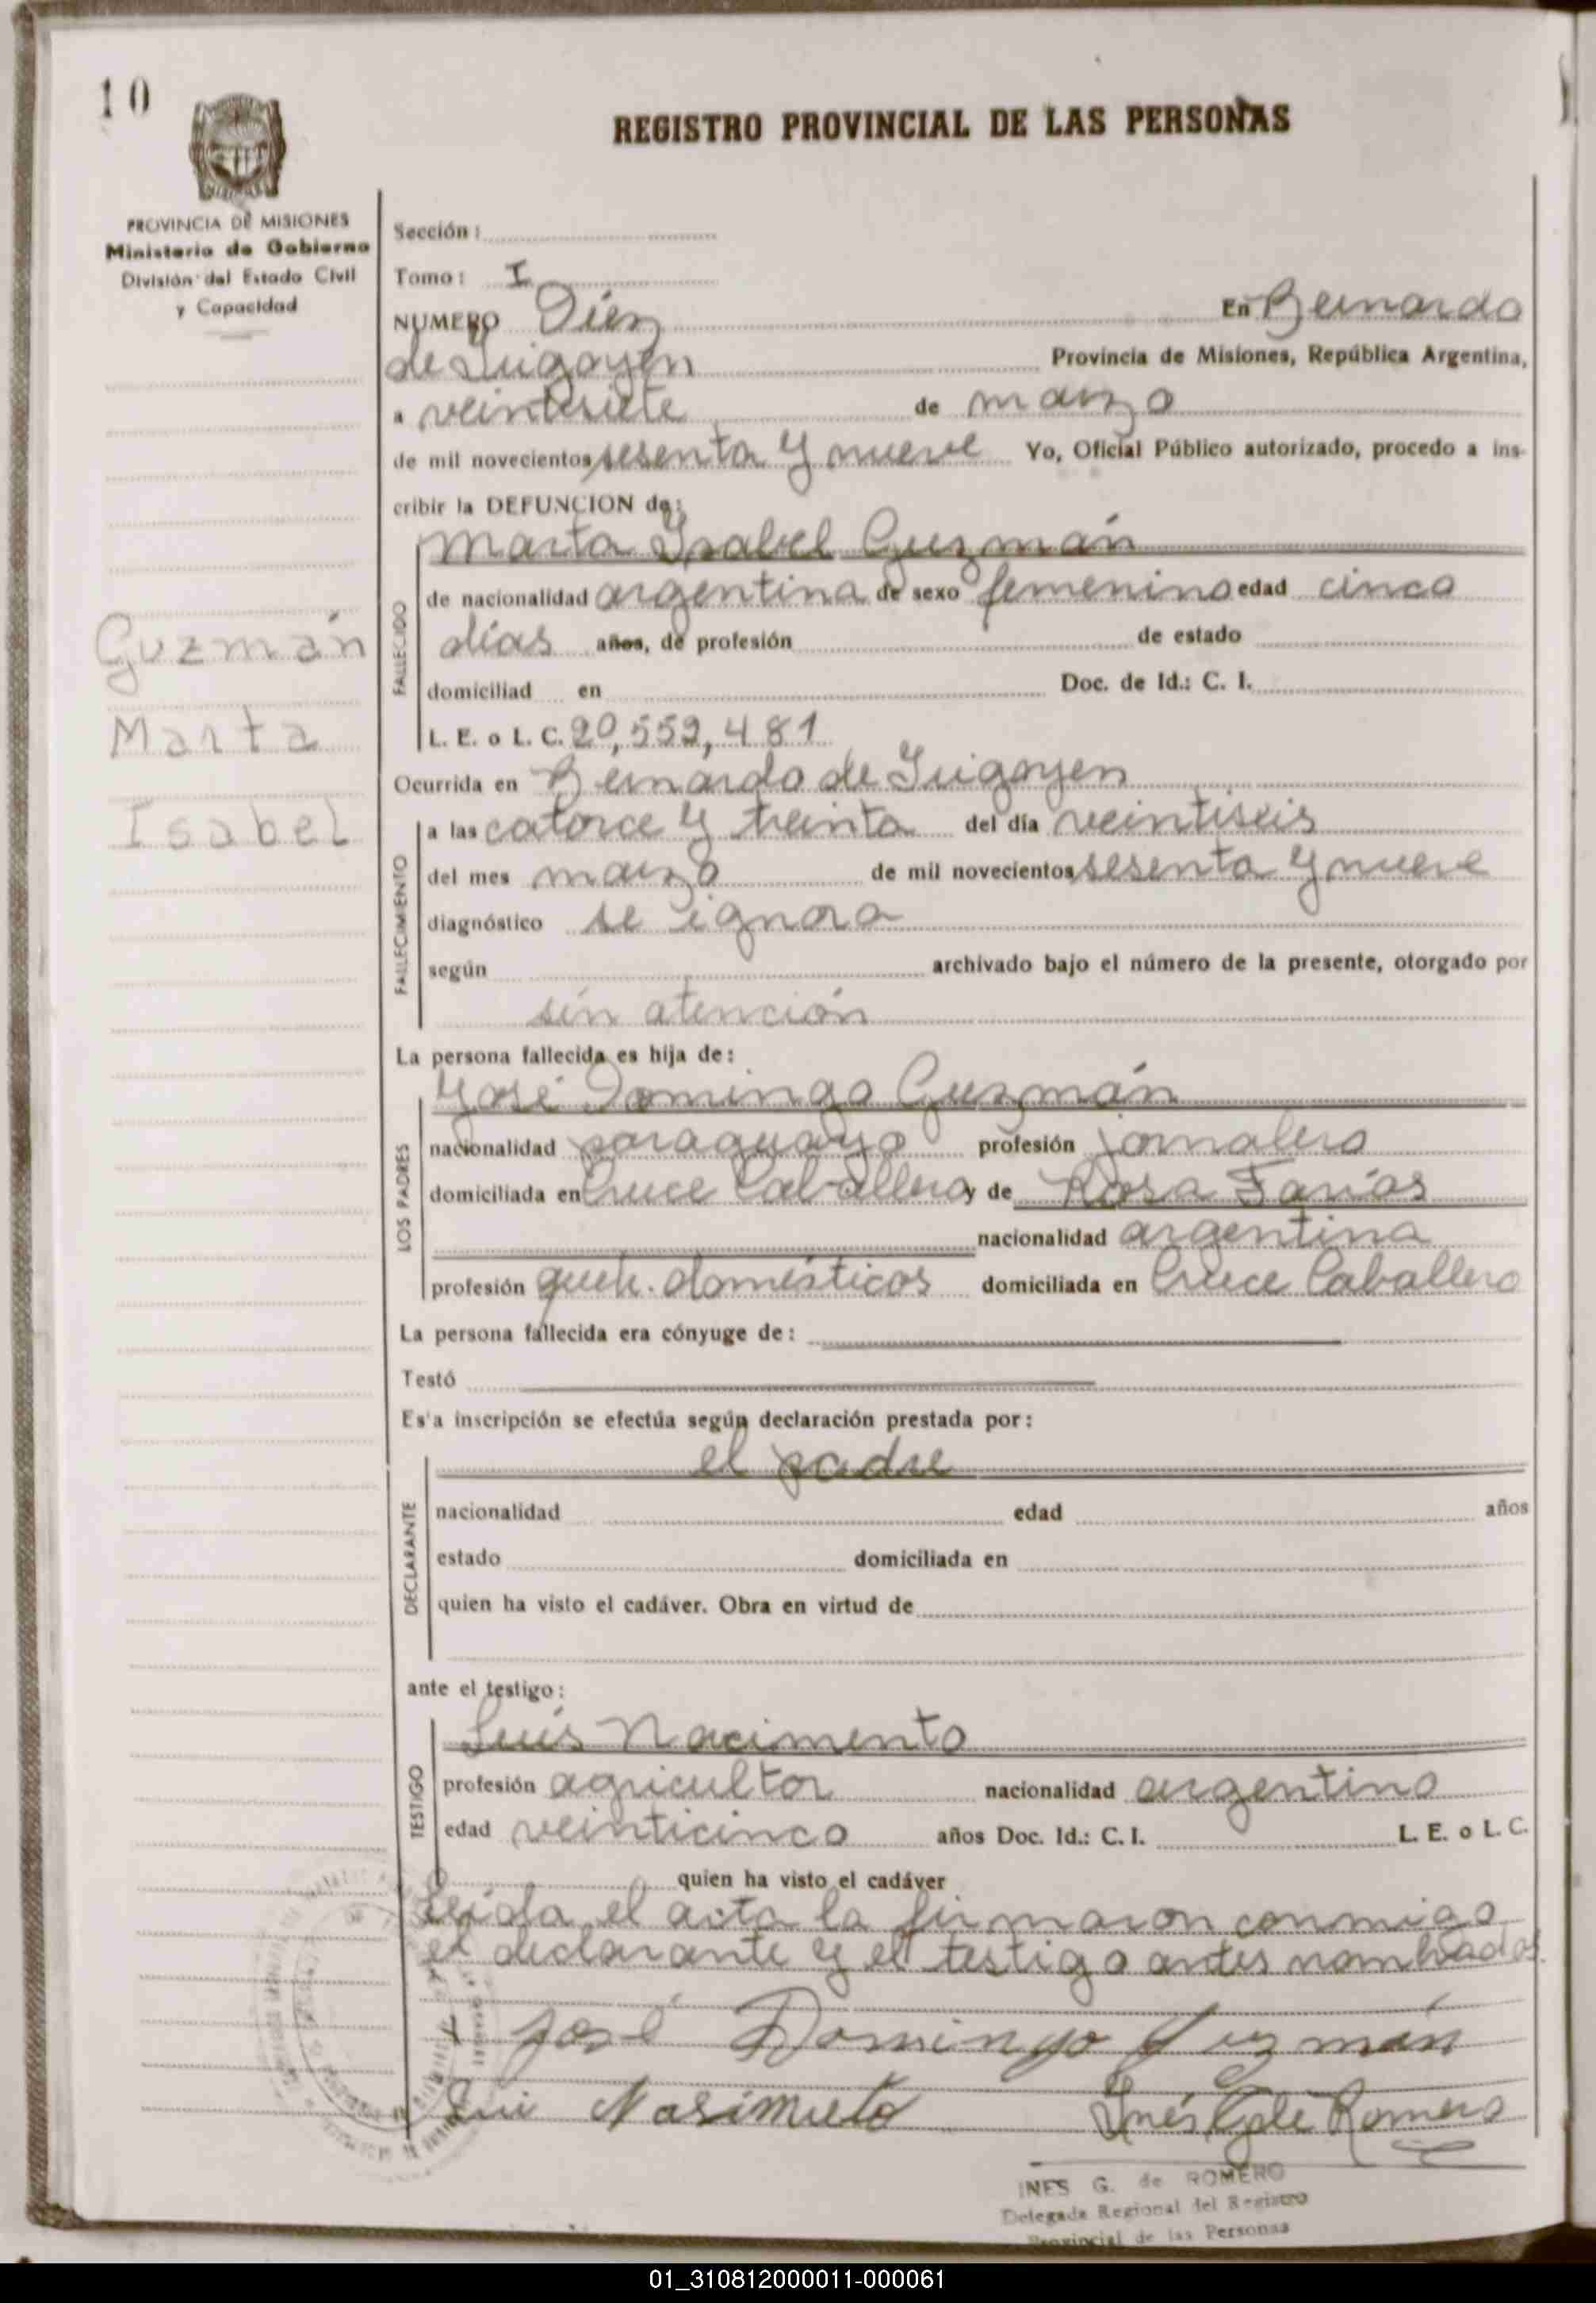 10
REGISTRO PROVINCIAL DE LAS PERSONAS
PROVINCIA DE MISIONES
Ministerio de Gobierno
División del Estado Civil
y Capacidad
Sección:
Tomo: I
NUMERO Diez En Bernardo
de Irigoyen Provincia de Misiones, República Argentina,
a veintisiete de marzo
de mil novecientos sesenta y nueve Yo, Oficial Público autorizado, procedo a ins-
cribir la DEFUNCION de:
Marta Isabel Guzmán
FALLECIDO
de nacionalidad argentina de sexo femenino edad cinco
días años, de profesión de estado
Guzmán
domiciliad en Doc. de Id.: C. I.
Marta
L. E. o L. C. 20,559,481
Ocurrida en Bernardo de Irigoyen
Isabel
FALLECIMIENTO
a las catorce y treinta del día veintiseis
del mes marzo de mil novecientos sesenta y nueve
diagnóstico se ignora
según archivado bajo el número de la presente, otorgado por
sin atención
La persona fallecida es hija de:
José Domingo Guzmán
LOS PADRES
nacionalidad paraguayo profesión jornalero
domiciliada en Cruce Caballero y de Rosa Farías
nacionalidad argentina
profesión queh. domésticos domiciliada en Cruce Caballero
La persona fallecida era cónyuge de:
Testó
Es'a inscripción se efectúa según declaración prestada por:
el padre
DECLARANTE
nacionalidad edad años
estado domiciliada en
quien ha visto el cadáver. Obra en virtud de
ante el testigo:
Luis Nacimento
TESTIGO
profesión agricultor nacionalidad argentino
edad veinticinco años Doc. Id.: C. I. L. E. o L. C.
quien ha visto el cadáver
Leida el acta la firmaron conmigo
el declarante y el testigo antes nombrados.
José Domingo Guzmán
Lui Nasimieto Inés G de Romero
INES G. de ROMERO
Delegada Regional del Registro
Provincial de las Personas
01_310812000011-000061